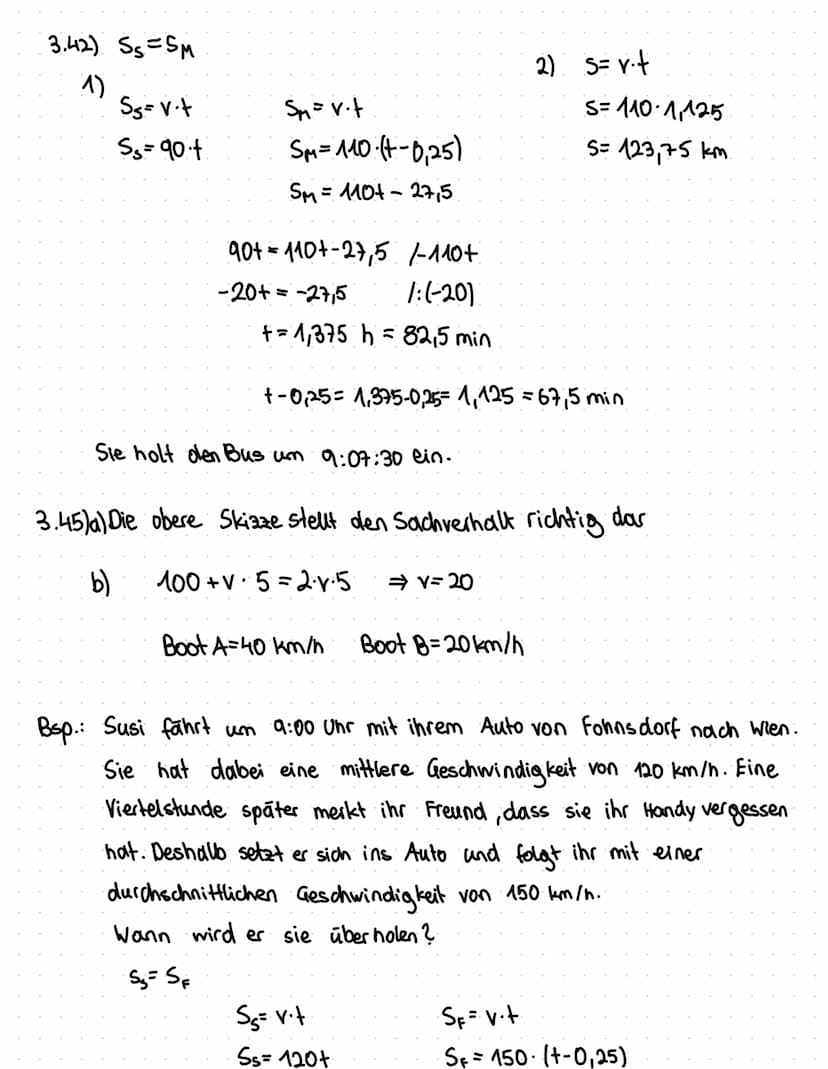 3.42) Ss=SM
1)
Ss=v·t
Ss=90·t
Sm=v·t
SM=110·(t-0,25)
SM=110t-27,5
2) s=v·t
s=110·1,125
s=123,75 km
90t=110t-27,5 /-110t
-20t=-27,5 /:(-20)
t=1,375 h = 82,5 min
t-0,25= 1,375-0,25= 1,125 = 67,5 min
Sie holt den Bus um 9:07:30 ein.
3.45)a) Die obere Skizze stellt den Sachverhalt richtig dar
b) 100+v·5=2·v·5 ⇒ v=20
Boot A=40 km/h Boot B=20km/h
Bsp.: Susi fährt um 9:00 Uhr mit ihrem Auto von Fohnsdorf nach Wien.
Sie hat dabei eine mittlere Geschwindigkeit von 120 km/h. Eine
Viertelstunde später merkt ihr Freund, dass sie ihr Handy vergessen
hat. Deshalb setzt er sich ins Auto und folgt ihr mit einer
durchschnittlichen Geschwindigkeit von 150 km/h.
Wann wird er sie überholen?
Ss=SF
Ss=v·t
Ss=120t
SF=v·t
SF=150·(t-0,25)